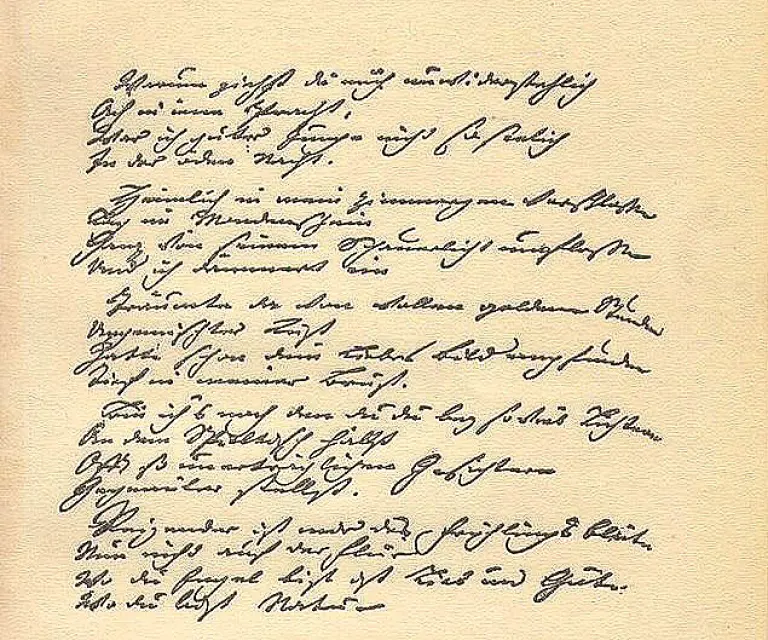 Warum ziehst du mich unwiderstehlich
Ach in jene Pracht,
War ich guter Junge nicht so selich
In der öden Nacht.
Heimlich in mein Zimmergen verschlossen
Lag im Mondenschein
Ganz von seinem Schauerlicht umflossen
Und ich dämmert ein
Träumte da von vollen goldenen Stunden
Ungemischter Lust
Hatte schon dein liebes Bild empfunden
Tief in meiner Brust.
Bin ich's noch den du bey so viel Lichtern
An dem Spieltisch hältst
Oft so unerträglichen Gesichtern
Gegenüber stellst.
Reizender ist mir des Frühlings Blüte
Nun nicht auf der Flur
Wo du Engel bist ist Lieb und Güte.
Wo du bist Natur